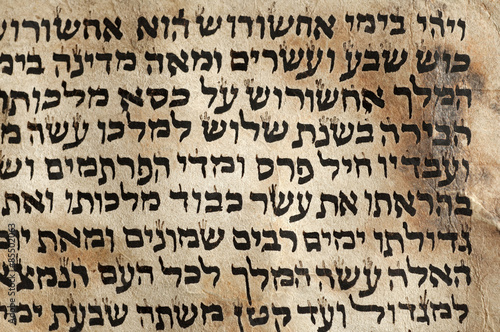 ויהי בימי אחשורוש הוא אחשורוש
כוש שבע ועשרים ומאה מדינה בימ
המלך אחשורוש על כסא מלכותו
הבירה בשנת שלוש למלכו עשה מ
ועבדיו חיל פרס ומדי הפרתמים וש
בהראתו את עשר כבוד מלכותו ואת
גדולתו ימים רבים שמונים ומאת י
האלה עשה המלך לכל העם הנמצ
למגדול ועד קטן משתה שבעת ימ